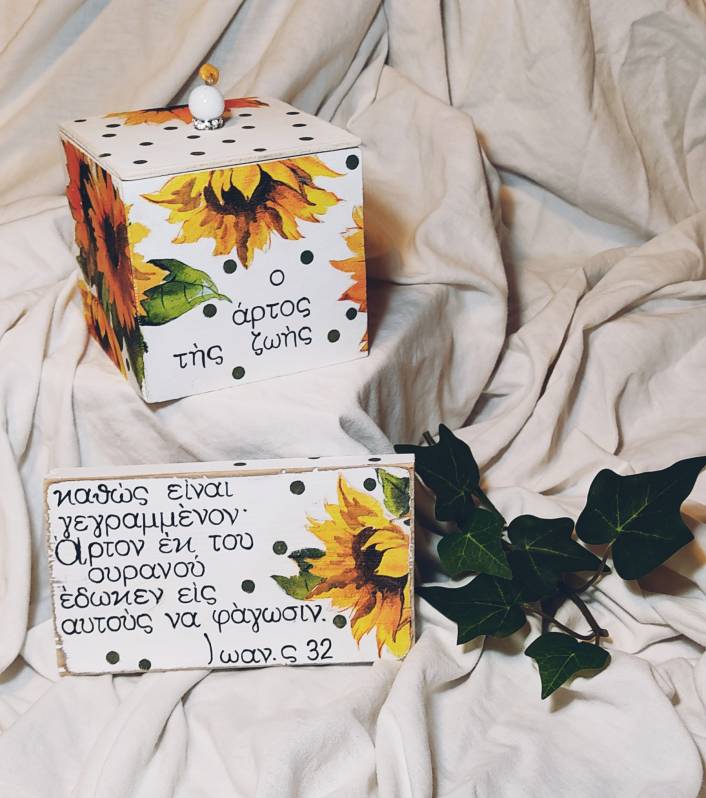 ο
άρτος
τὴς ζωής
καθὼς εἰναι
γεγραμμὲνον·
Άρτον ὲκ του
ουρανού
ὲδωκεν εὶς
αυτοὺς να φὰγωσιν.
Ιωαν. ς 32